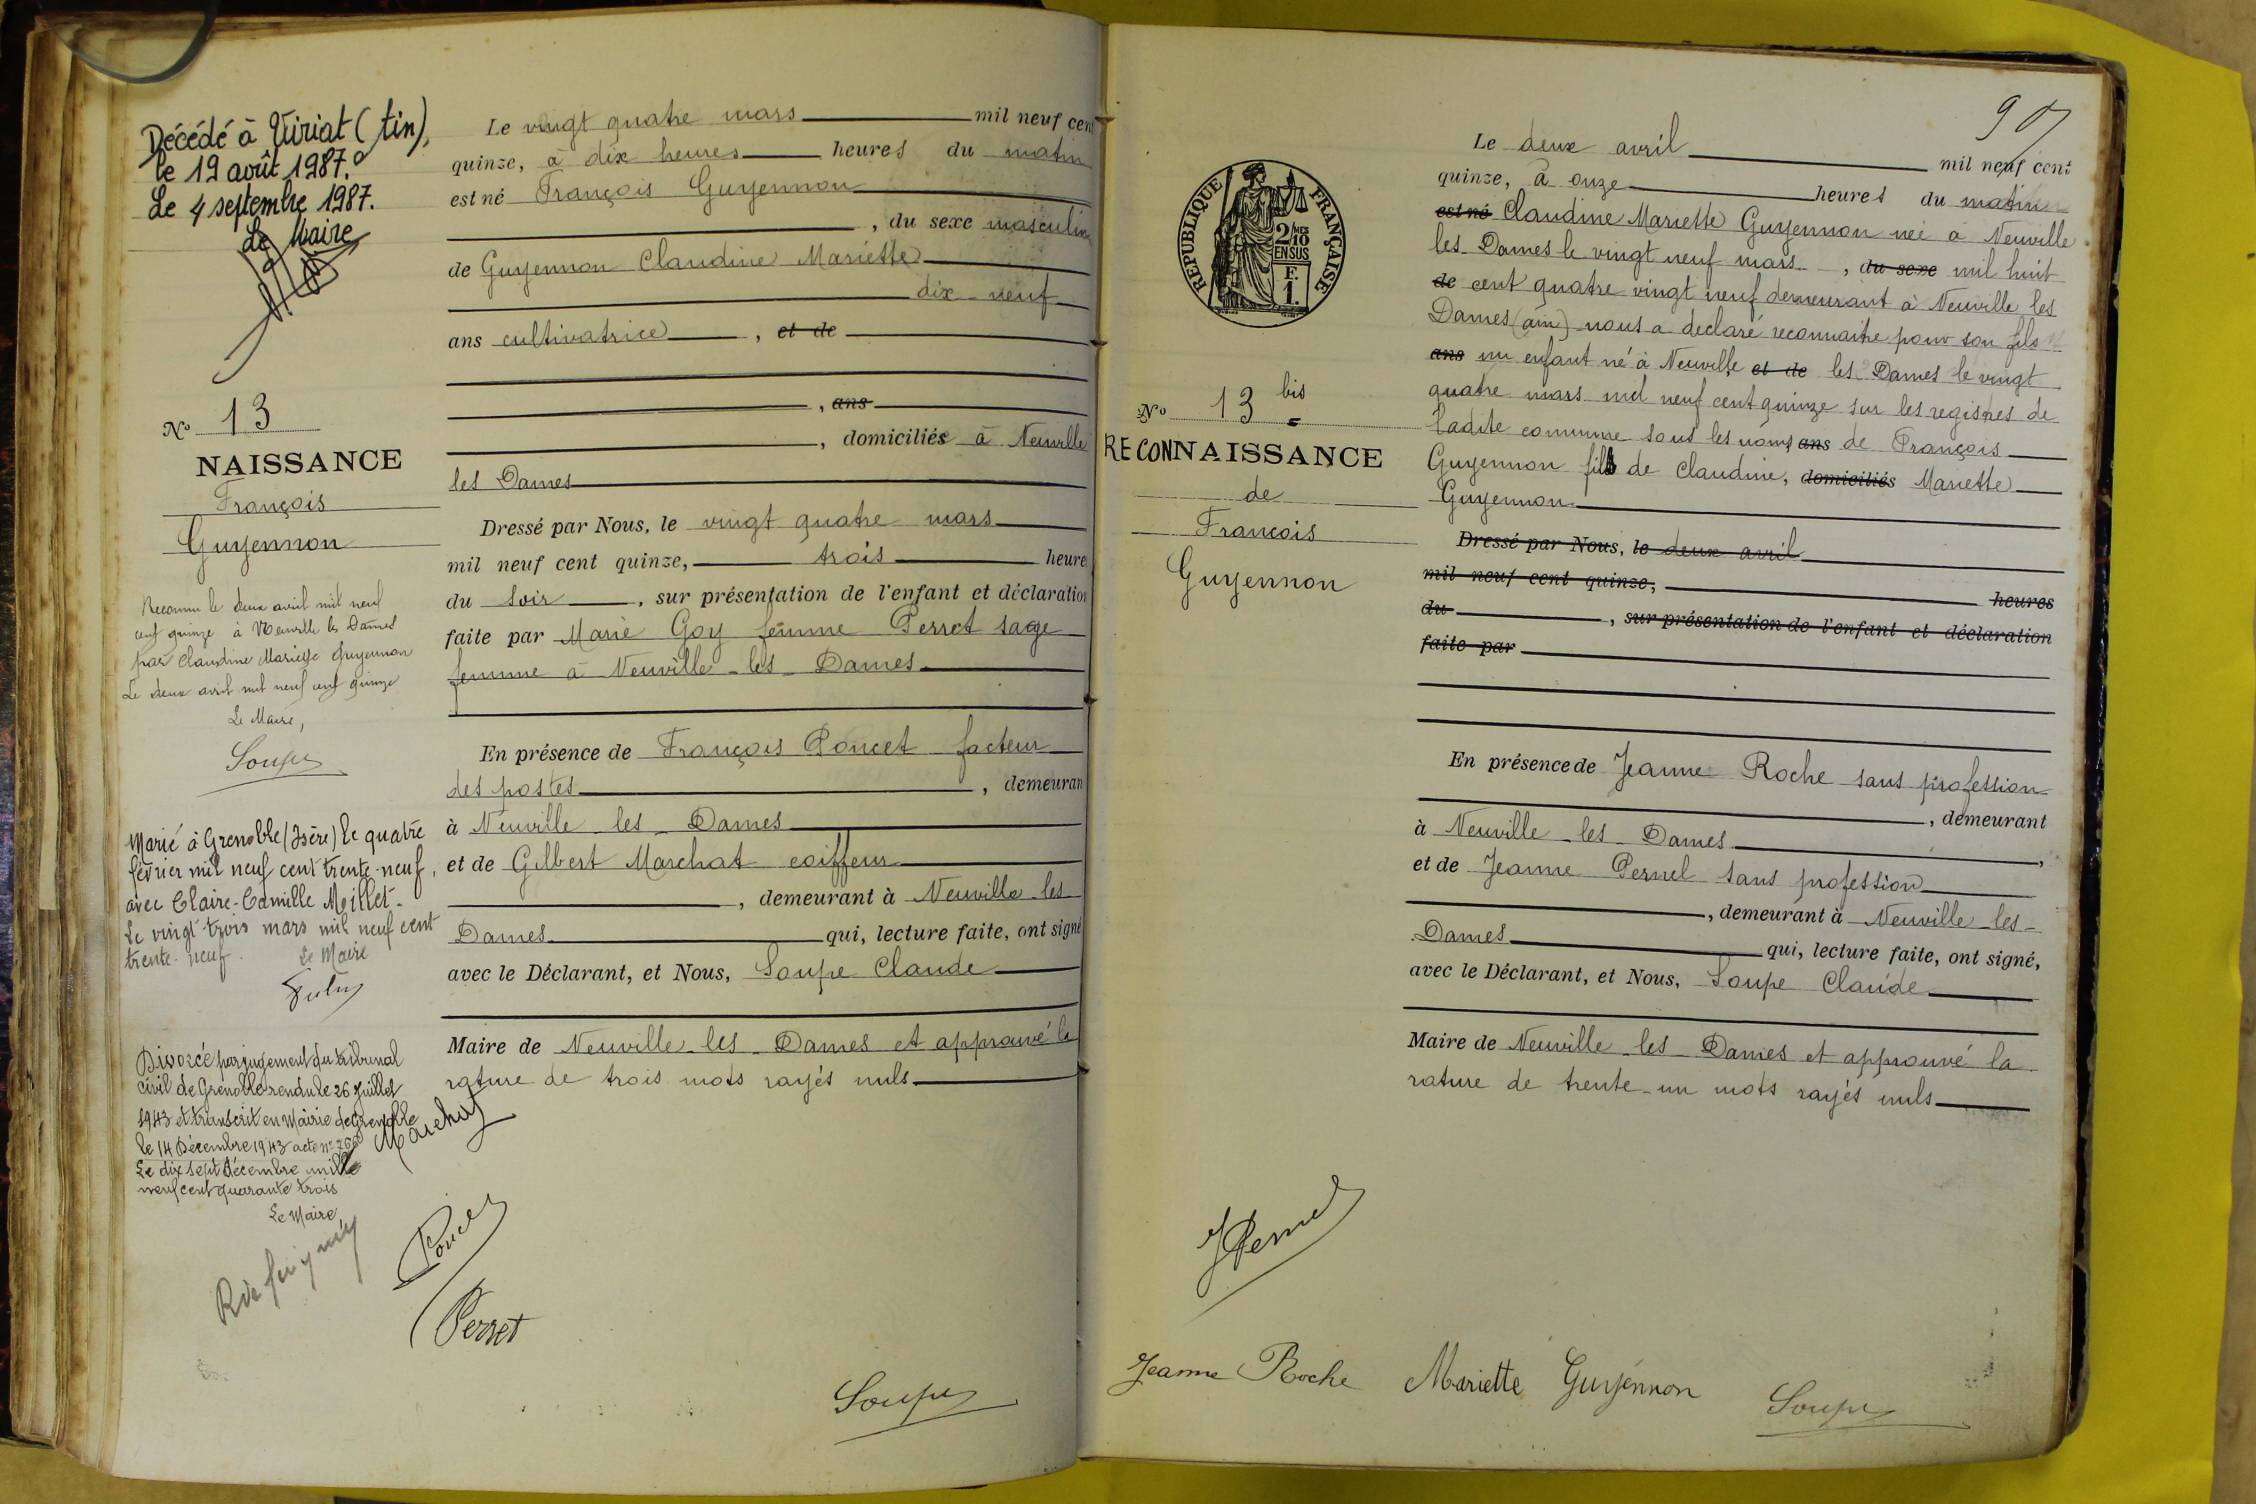 Décédé à Viriat (Ain),
le 19 août 1987.
Le 4 septembre 1987.
Le Maire
No 13
NAISSANCE
François
Guyennon
Reconnu le deux avril mil neuf
cent quinze à Neuville les Dames
par Claudine Mariette Guyennon
Le deux avril mil neuf cent quinze
Le Maire,
Soupe
Marié à Grenoble (Isère) le quatre
février mil neuf cent trente-neuf,
avec Claire-Camille Meillet.
Le vingt-trois mars mil neuf cent
trente-neuf. Le Maire
Divorcé par jugement du tribunal
civil de Grenoble rendu le 26 Juillet
1943 et transcrit en Mairie de Grenoble
le 14 Décembre 1943 acte n°
Le dix sept Décembre mille
neuf cent quarante trois
Le Maire
Le vingt quatre mars mil neuf cent
quinze, à dix heures heures du matin
est né François Guyennon
, du sexe masculin
de Guyennon Claudine Mariette
dix-neuf
ans cultivatrice, et de
, ans
, domiciliés à Neuville
les Dames
Dressé par Nous, le vingt quatre mars
mil neuf cent quinze, trois heures
du soir, sur présentation de l'enfant et déclaration
faite par Marie Goy femme Perret sage
femme à Neuville-les-Dames
En présence de François Poncet facteur
des postes, demeurant
à Neuville-les-Dames
et de Gilbert Marchat coiffeur
, demeurant à Neuville-les
Dames qui, lecture faite, ont signé
avec le Déclarant, et Nous, Soupe Claude
Maire de Neuville-les-Dames et approuvé la
rature de trois mots rayés nuls
Marchat
Poncet
Perret
Soupe
90
REPUBLIQUE FRANÇAISE
2/10MES
EN SUS
F.
1.
No 13 bis
RECONNAISSANCE
de
François
Guyennon
Le deux avril mil neuf cent
quinze, à onze heures du matin
est né Claudine Mariette Guyennon née à Neuville
les-Dames le vingt neuf mars, du sexe mil huit
de cent quatre vingt neuf demeurant à Neuville les
Dames (ain) nous a declaré reconnaitre pour son fils
ans un enfant né à Neuville et de les Dames le vingt
quatre mars mil neuf cent quinze sur les registres de
ladite commune sous les noms, ans de François
Guyennon fils de Claudine, domiciliés Mariette
Guyennon
Dressé par Nous, le deux avril
mil neuf cent quinze, heures
du, sur présentation de l'enfant et déclaration
faite par
En présence de Jeanne Roche sans profession
, demeurant
à Neuville-les-Dames,
et de Jeanne Pernel sans profession
, demeurant à Neuville-les-
Dames qui, lecture faite, ont signé,
avec le Déclarant, et Nous, Soupe Claude
Maire de Neuville-les-Dames et approuvé la
rature de trente-un mots rayés nuls
JPernel
Jeanne Roche Mariette Guyennon Soupe